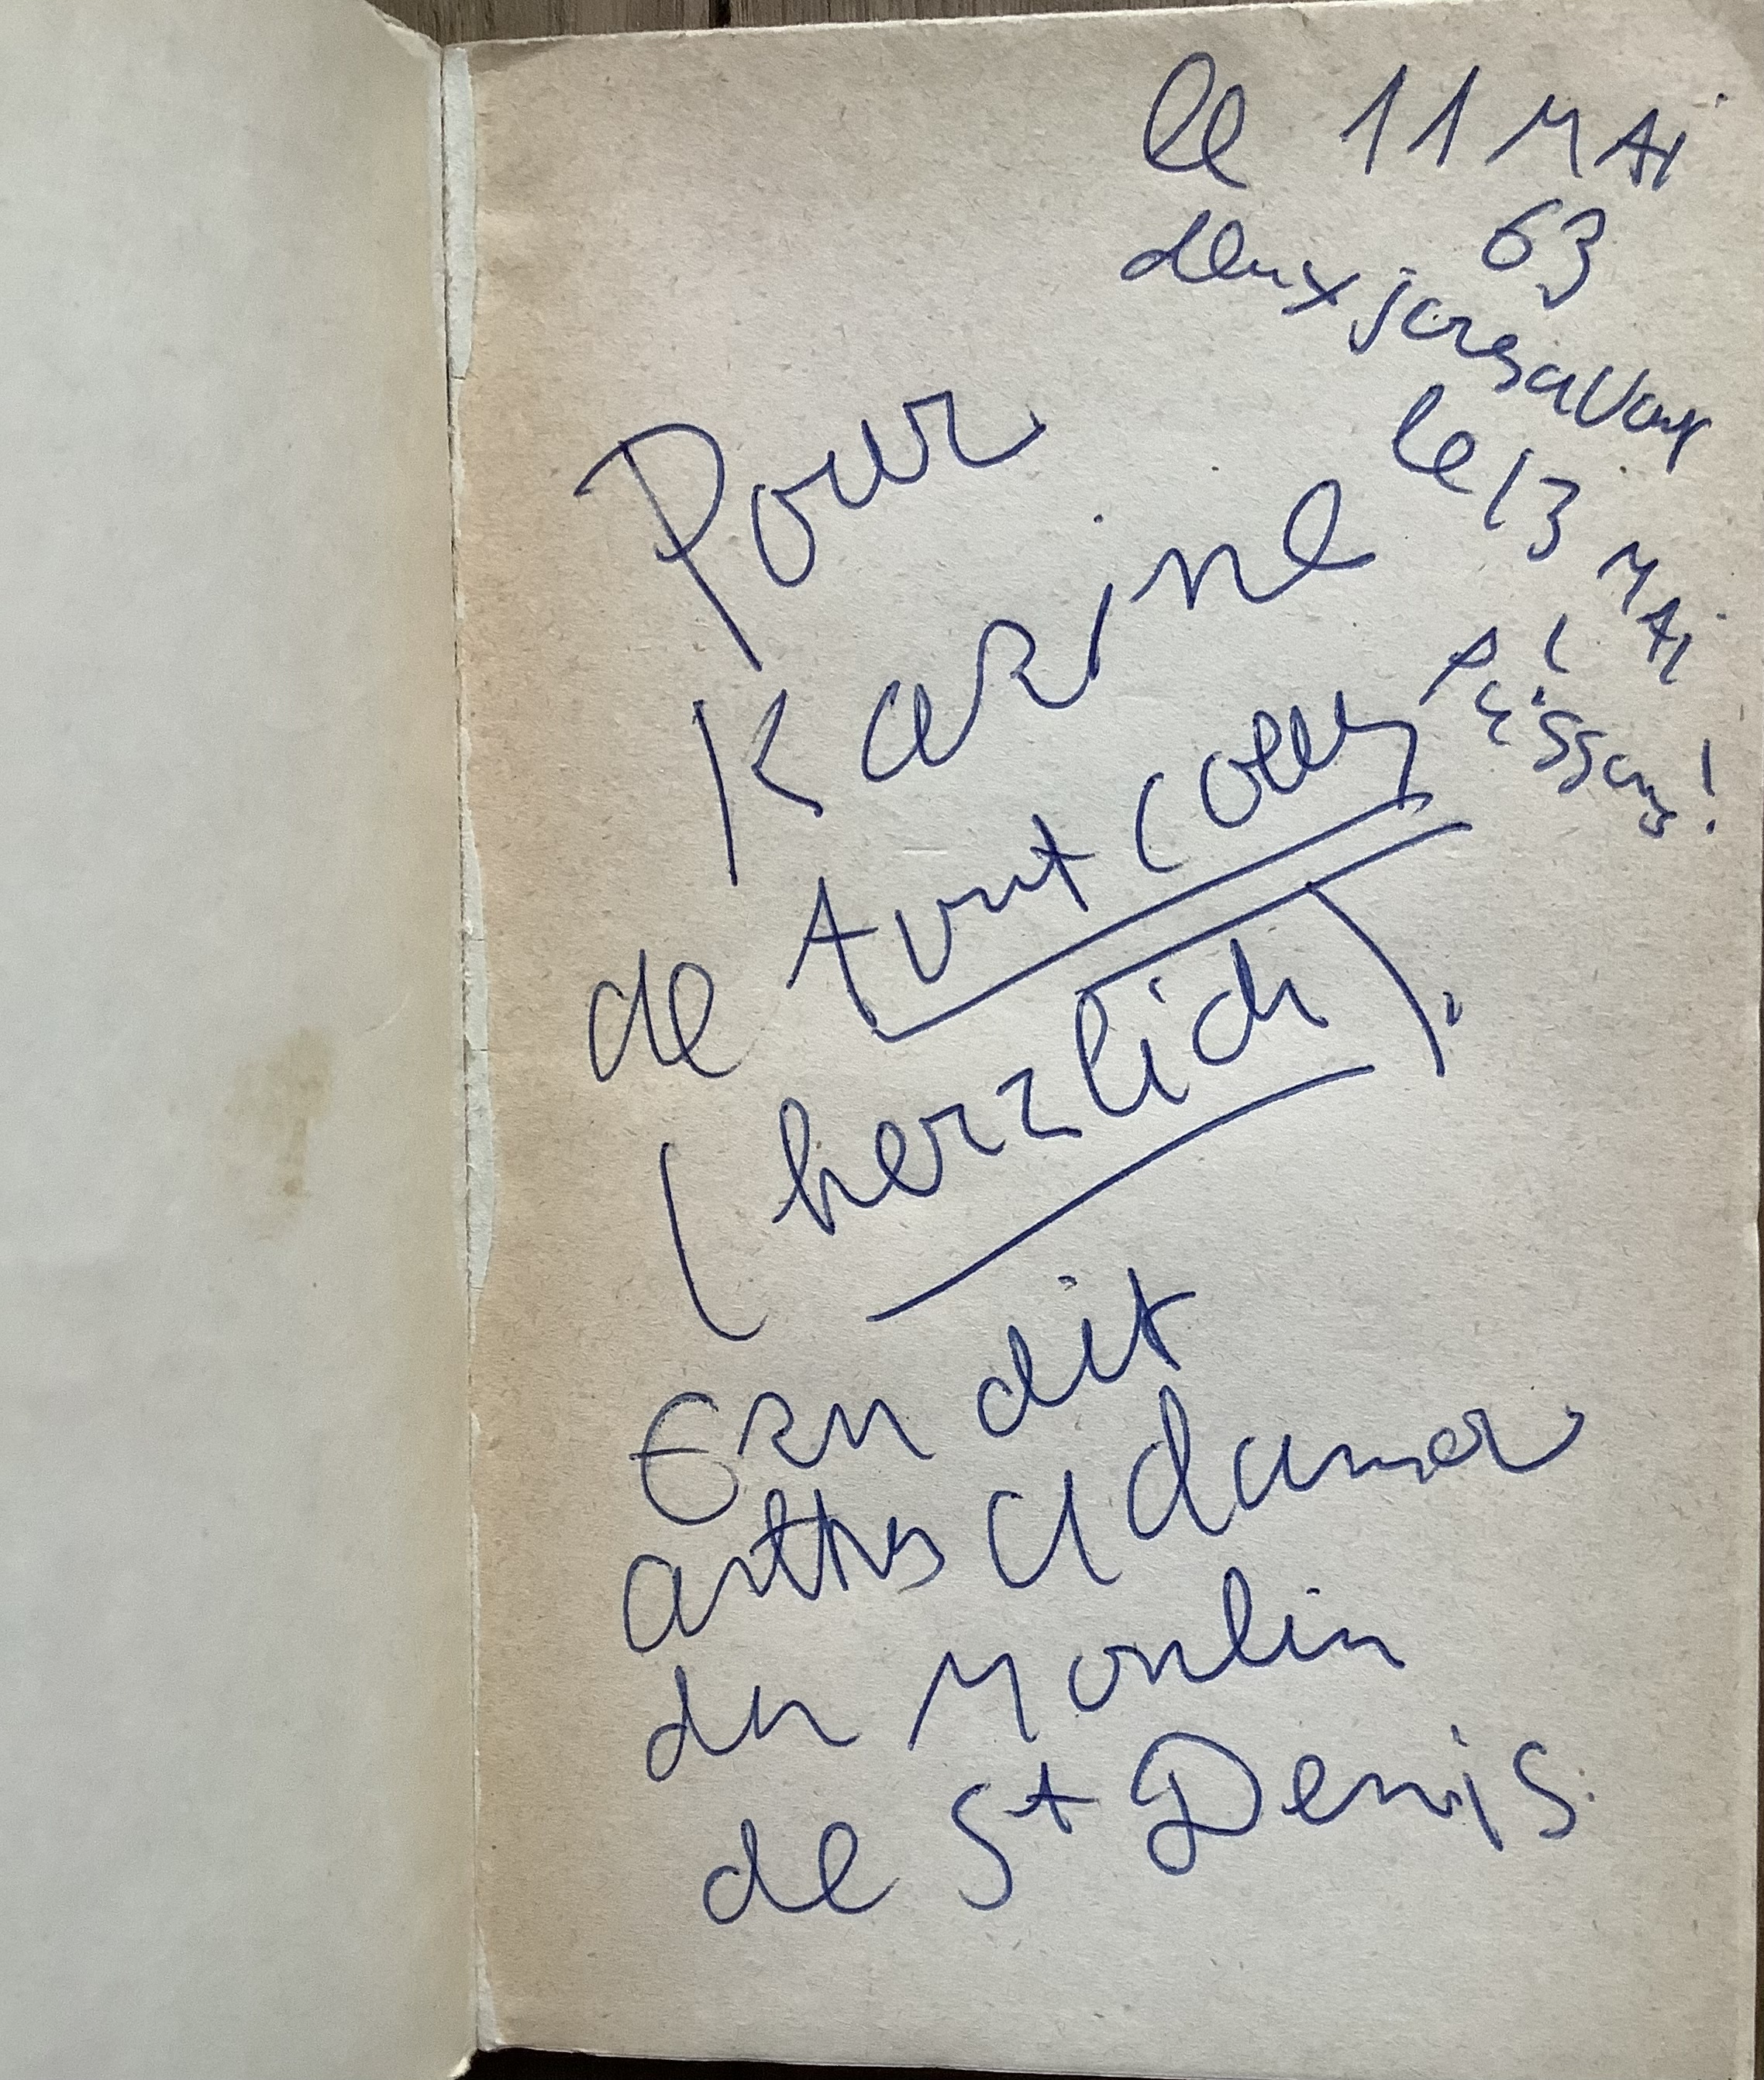 le 11 MAI
63
deux jours avant
le 13 MAI
Puissant!
Pour
Karine
de tout coeur
(herzlich).
Ern dit
arthur Adamov
du Moulin
de St Denis.